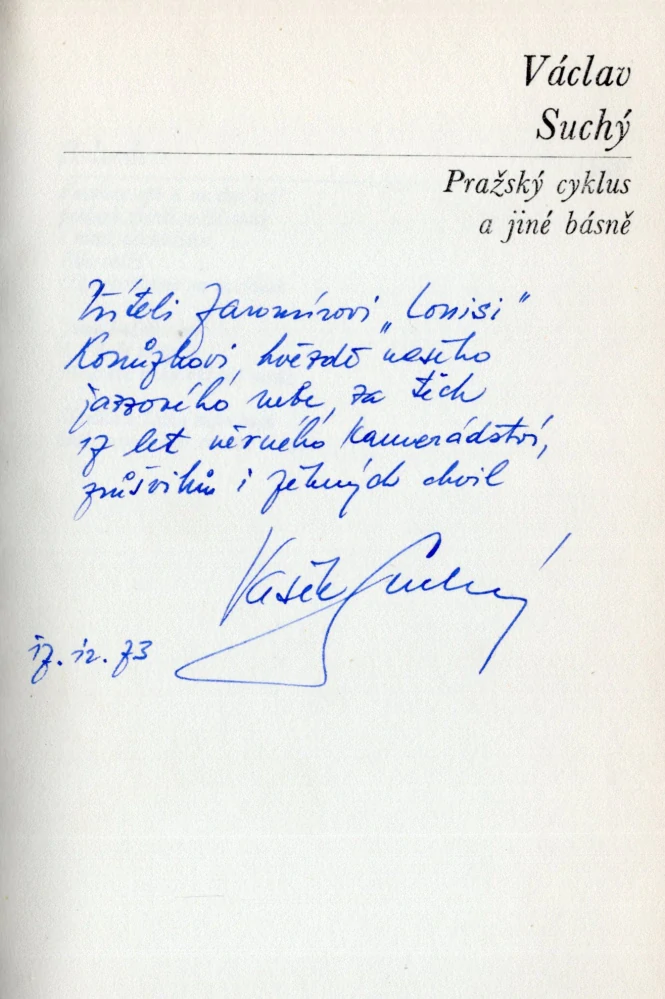 Václav
Suchý
Pražský cyklus
a jiné básně
Příteli Jaromírovi „Louisi“
hvězdě našeho
jazzového nebe, za těch
17 let věrného kamerádství,
průšvihů i pěkných chvil
Vašek Suchý
17. 12. 73